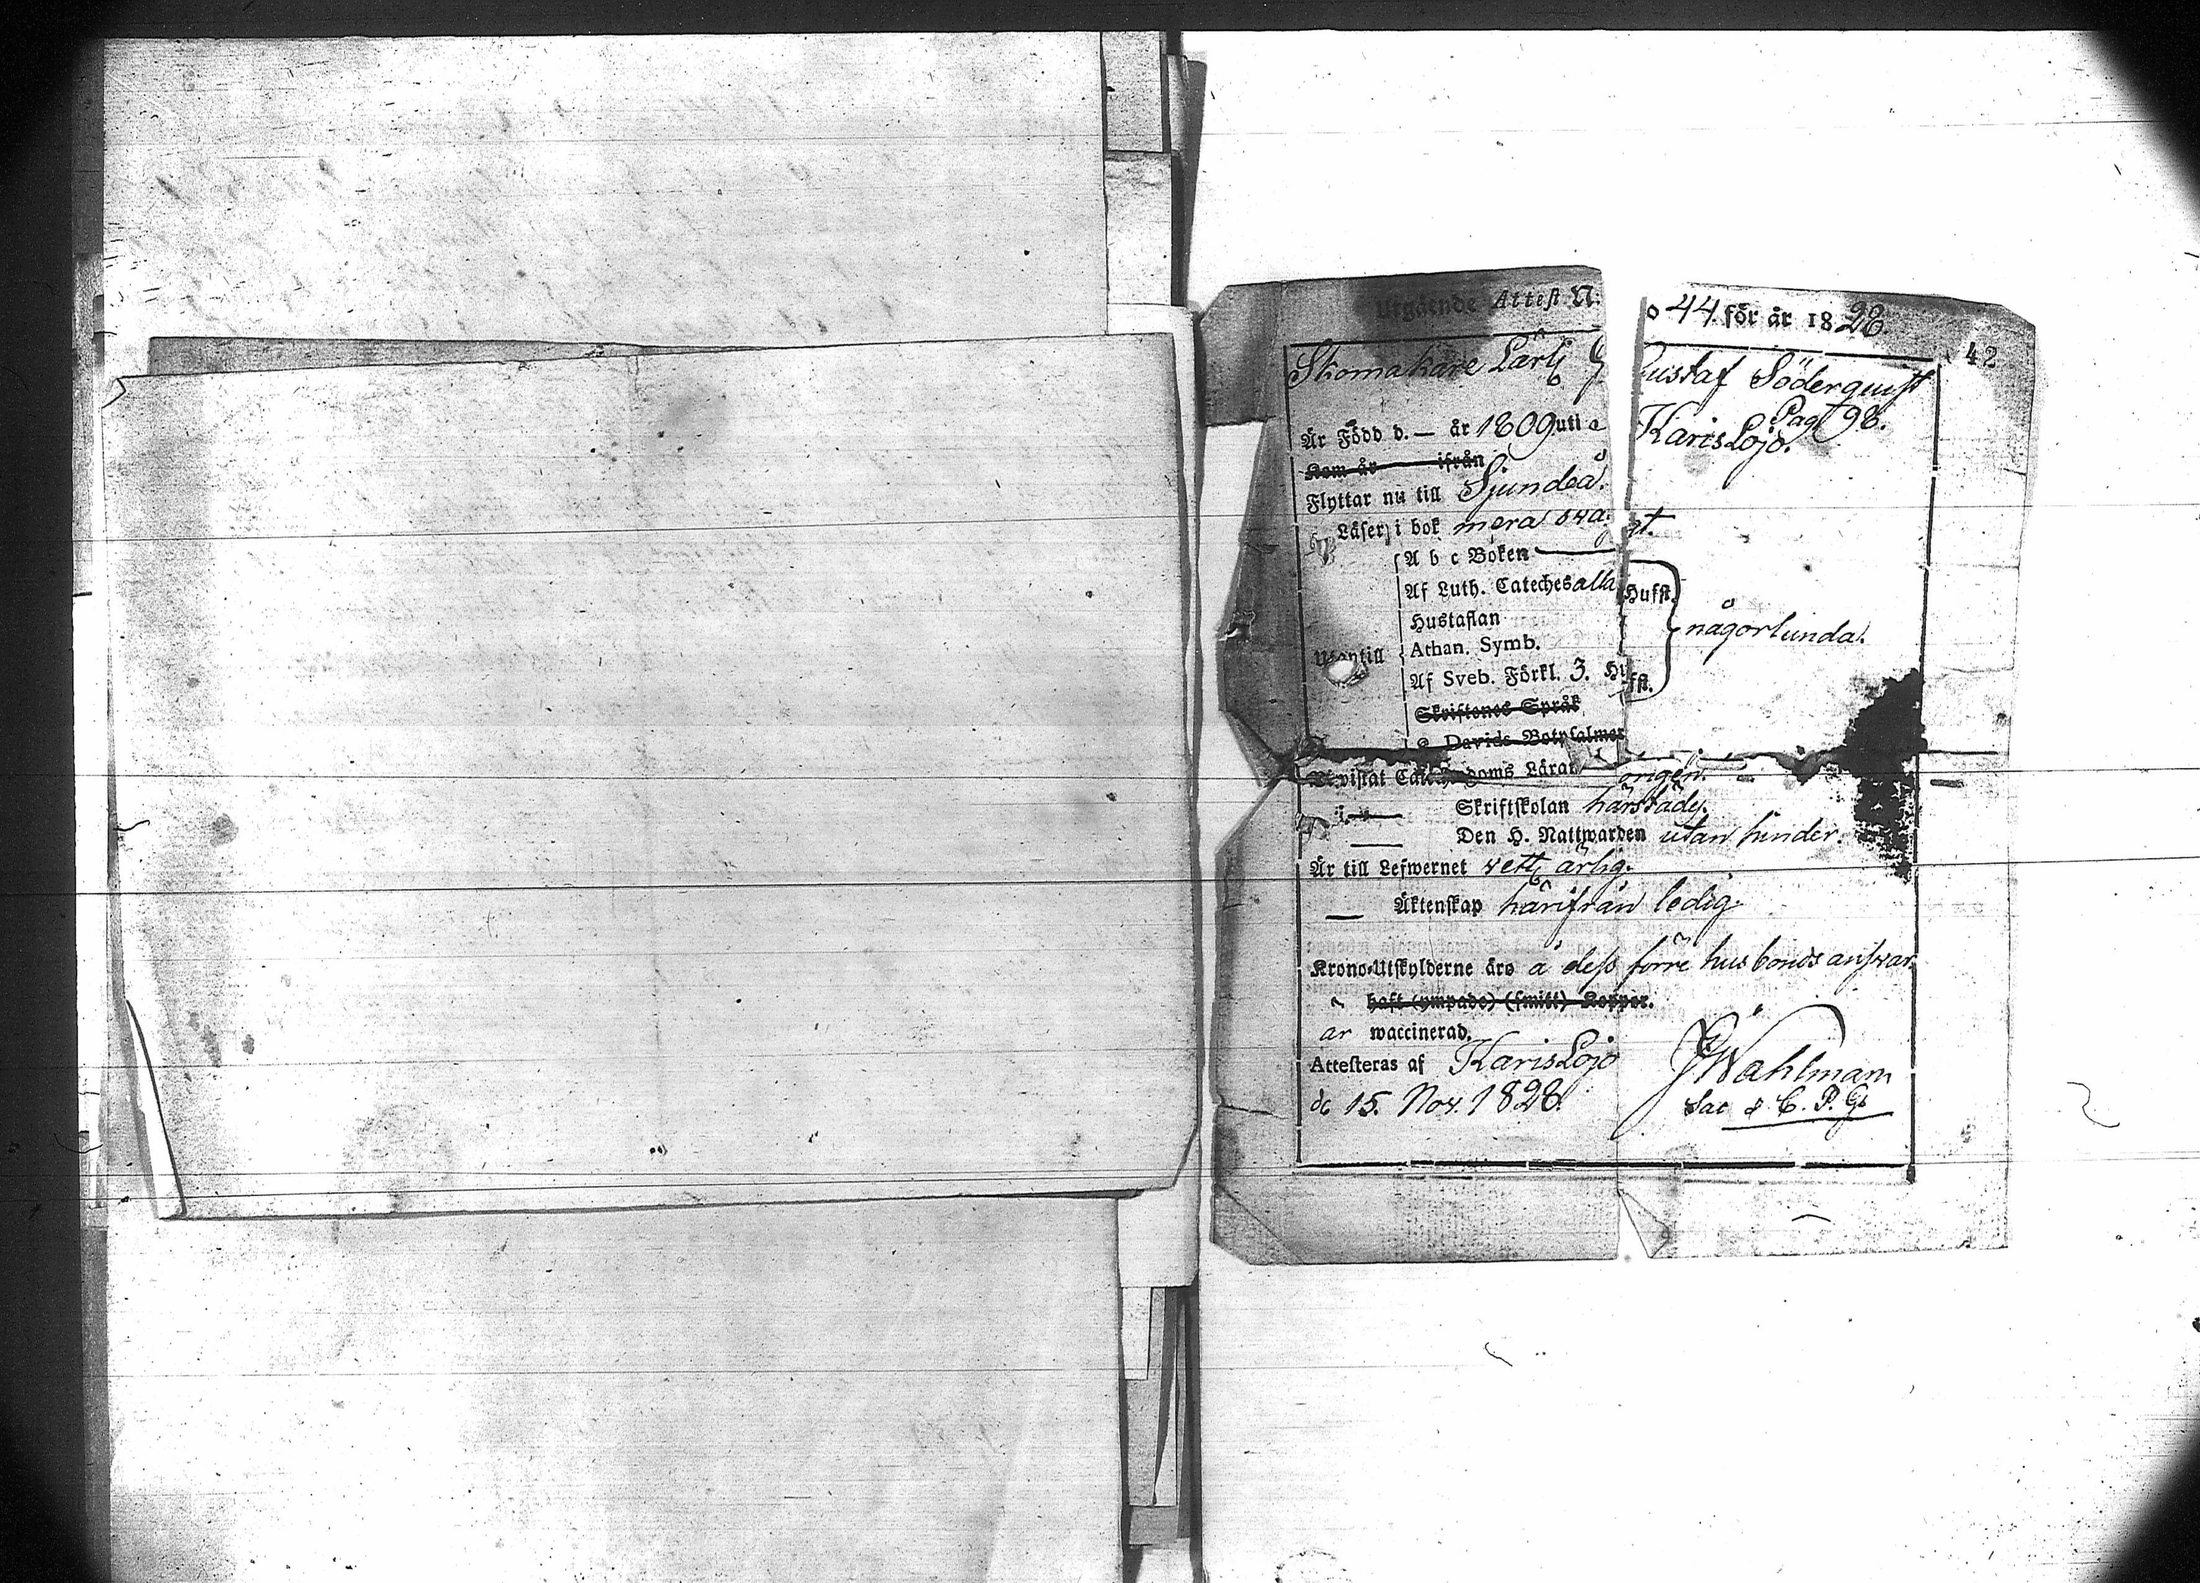 Utgående Attest N:o 44 för år 1828
42
Skomakare Lärl. Gustaf Söderquist
Pag 98.
Är Född d. — år 1809 uti KarisLojo.
Kom år ifrån
Flyttar nu till Sjundeå.
Läser i bok mera svagt.
A b c Boken
Af Luth. Cateches alla Hufst.
Hustaflan
Athan. Symb.
någorlunda.
Utantill
Af Sveb. Förkl. 3. Hufst.
Skriftenes Språk
Davids Botpsalmer
Skriftskolan härstädes.
Den H. Nattwarden utan hinder.
Är till Lefwernet ärlig.
Äktenskap härifrån ledig.
Krono-Utskylderne äro å dess förre husbonds answar.
haft (ympade) (smitt) Koppor.
är waccinerad.
Attesteras af KarisLojo
de 15. Nov. 1828.
Wahlman
Sac & C. P. G